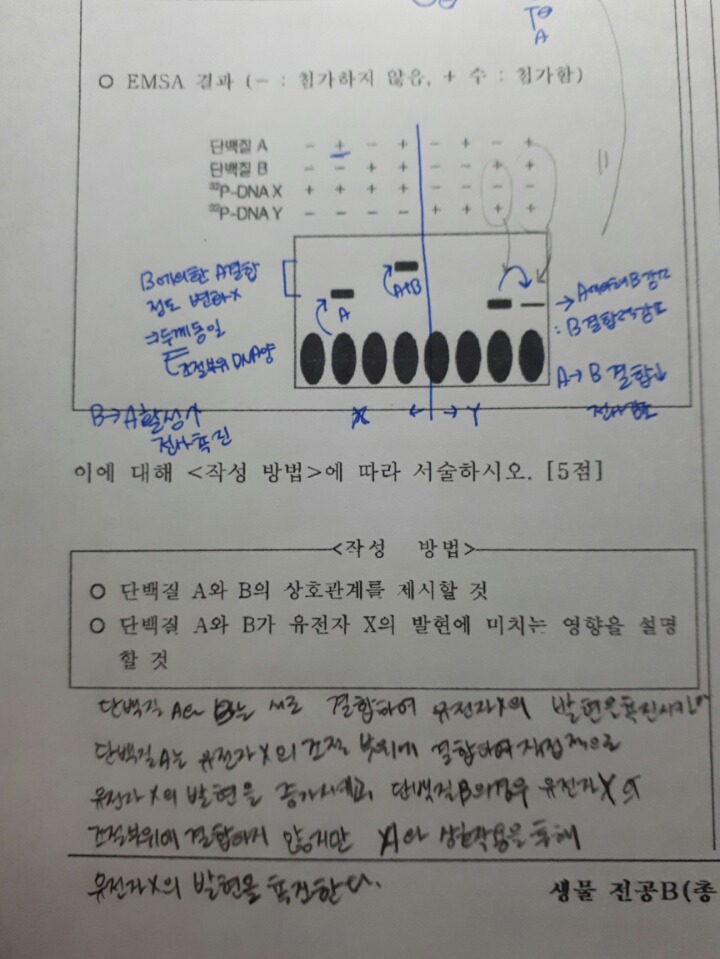 T⊖
A
○ EMSA 결과 (- : 첨가하지 않음, + 수 : 첨가함)
단백질 A - + - + - + - +
단백질 B - - + + - - + +
³²P-DNA X + + + + - - - -
³²P-DNA Y - - - - + + + +
B에 의한 A결합
정도 변화 X
⇒ 두께 동일
조절부위 DNA양
A
A+B
B 결합력 감소
A → B 결합
B → A 활성
전사 촉진
X ← → Y
이에 대해 <작성 방법>에 따라 서술하시오. [5점]
<작성 방법>
○ 단백질 A와 B의 상호관계를 제시할 것
○ 단백질 A와 B가 유전자 X의 발현에 미치는 영향을 설명
할 것
단백질 A와 B는 서로 결합하여 유전자X의 발현을 촉진시킨다
단백질A는 유전자X의 조절 부위에 결합하여 직접적으로
유전자X의 발현을 증가시키고, 단백질B의 경우 유전자X의
조절부위에 결합하지 않지만 A와 상호작용을 통해
유전자X의 발현을 촉진한다.
생물 전공B(총